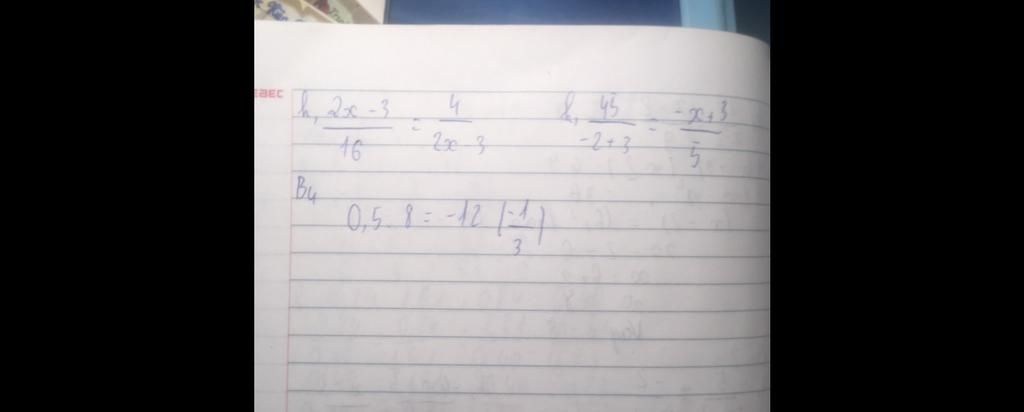 h, (2x - 3)/16 = 4/(2x - 3) k, 45/(-2+3) = (-x+3)/5
B4
0,5. 8 = -12 (-1/3)